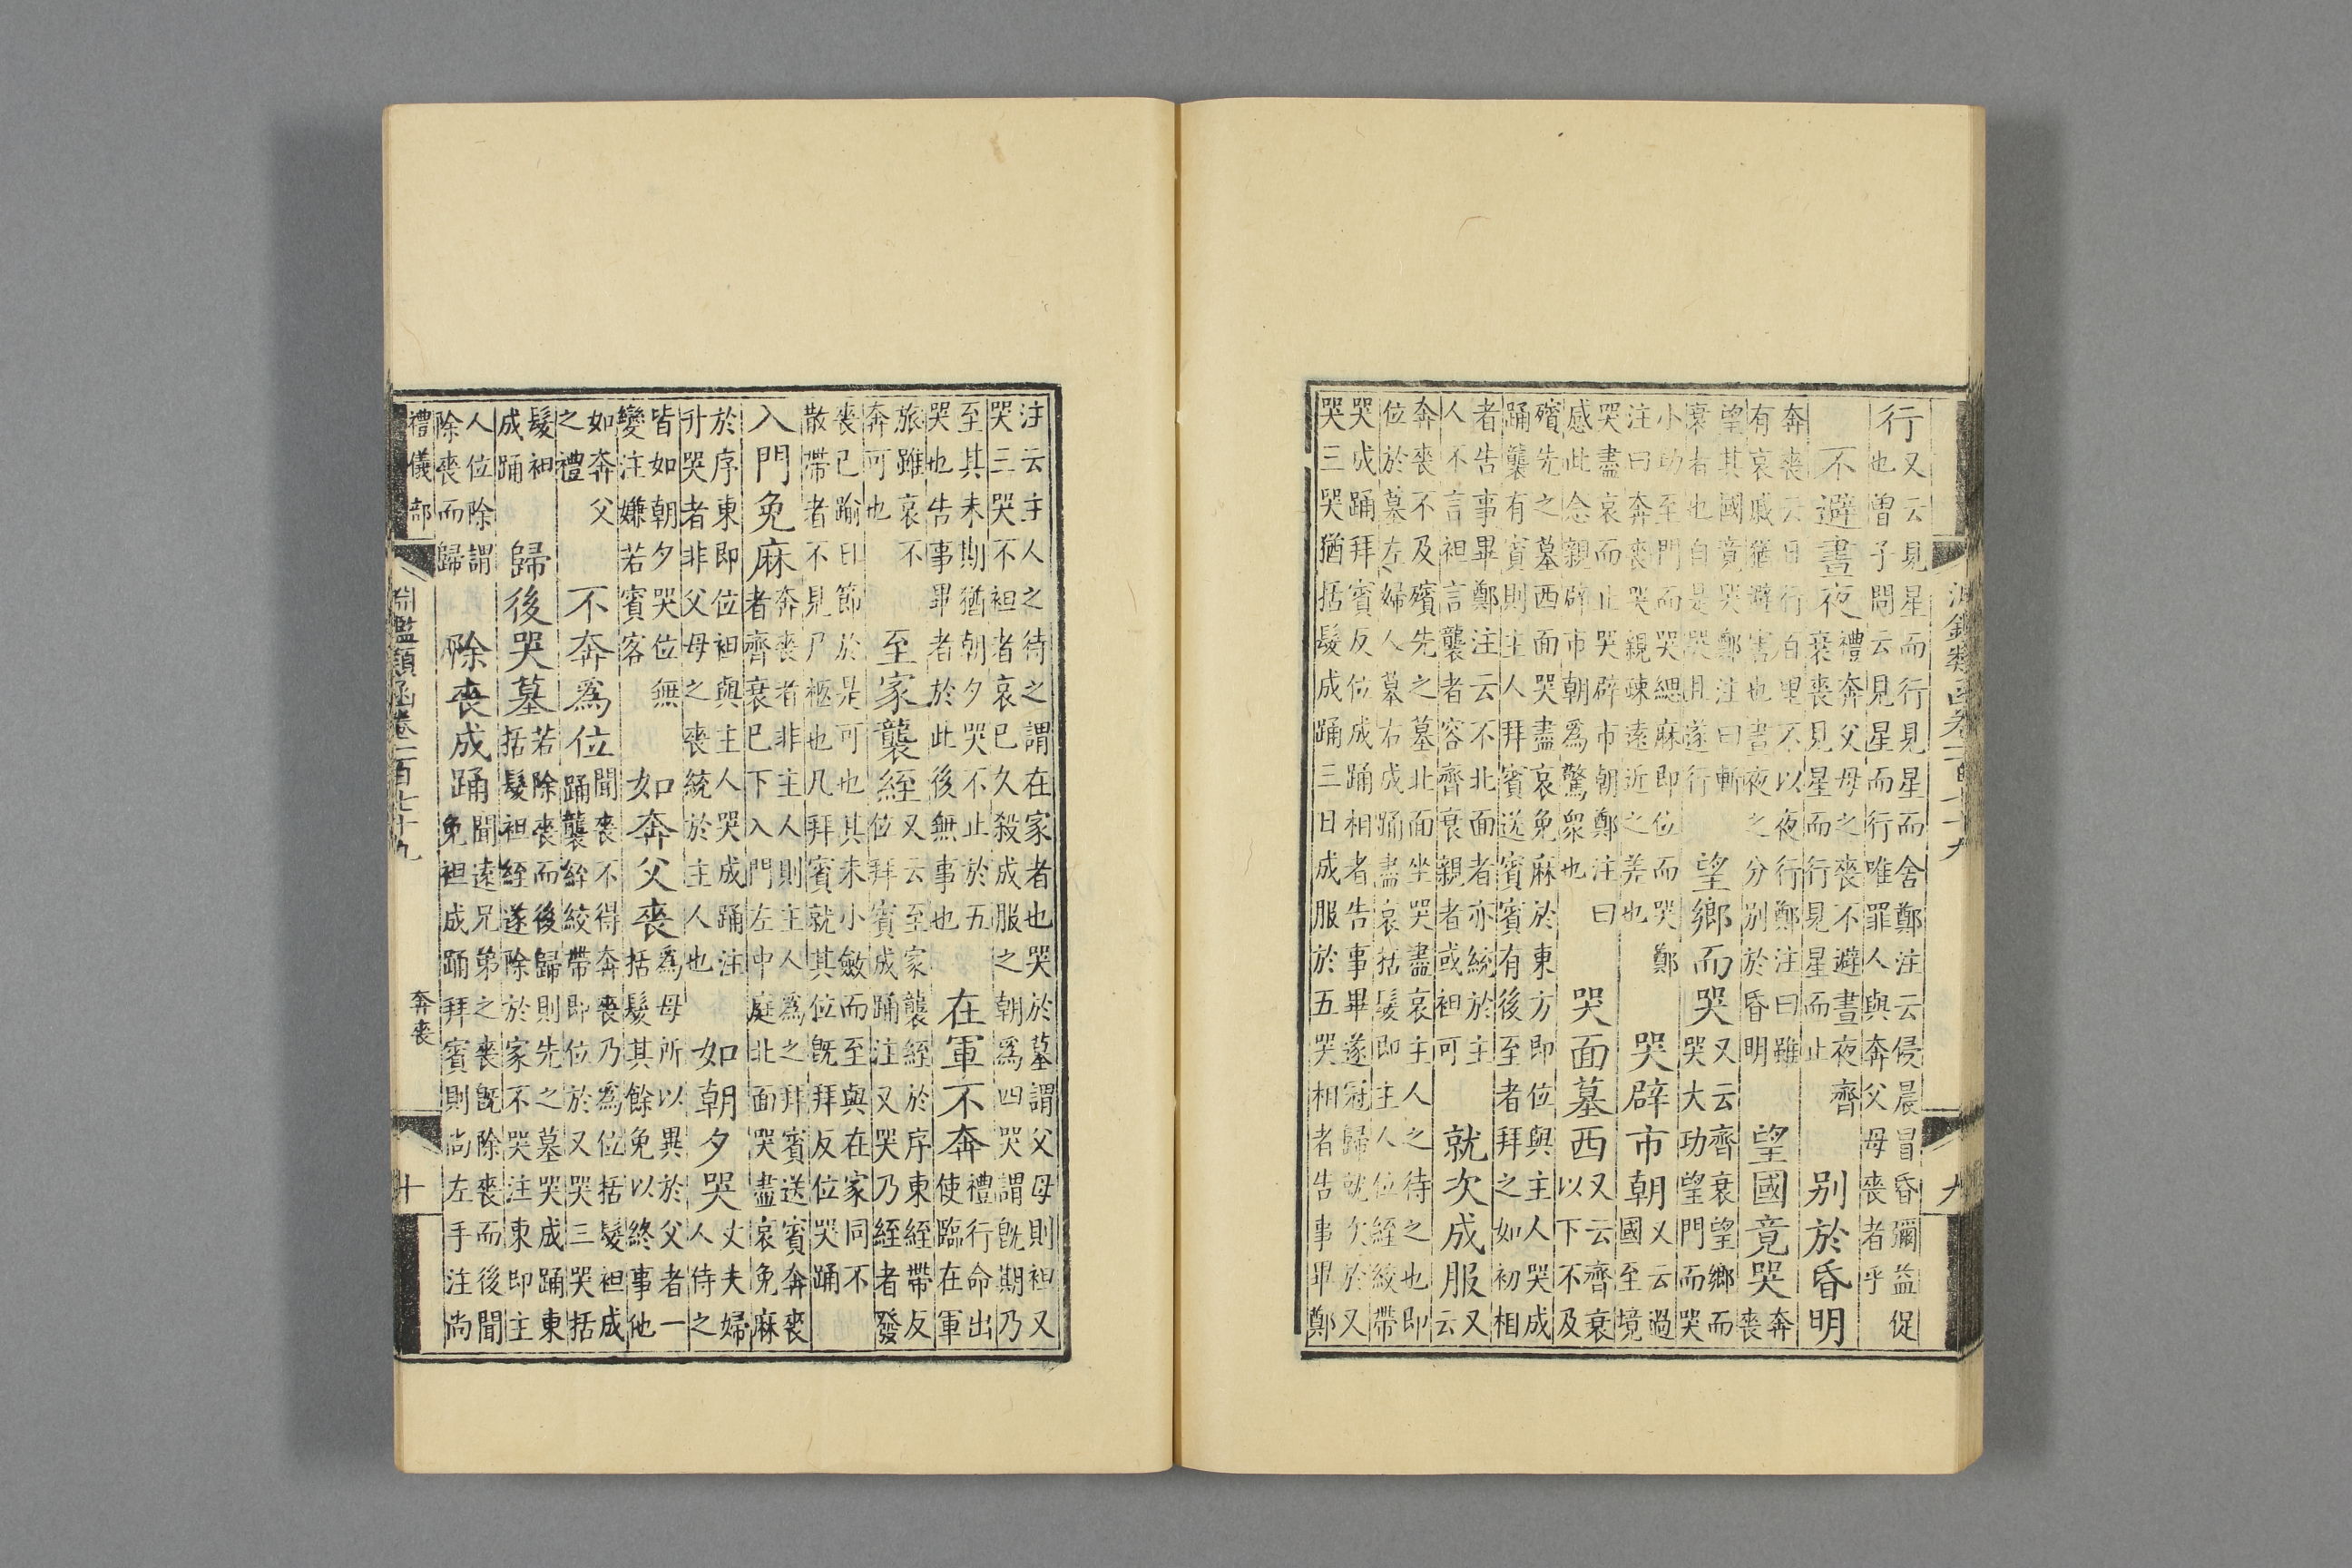 九
行
又云見星而行見星而舍鄭注云侵晨冒昏彌益促
也曾子問云見星而行唯罪人與奔父母喪者乎
不避晝夜
禮奔父母之喪不避晝夜齊
衰喪見星而行見星而止
別於昏明
奔喪云日行百里不以夜行鄭注曰雖
有哀戚猶避害也晝夜之分別於昏明
望國竟哭
奔
喪
望其國竟哭鄭注曰斬
衰者也自是哭且遂行
望鄉而哭
又云齊衰望鄉而
哭大功望門而哭
小功至門而哭緦麻即位而哭鄭
注曰奔喪哭親疎遠近之差也
哭辟市朝
又云過
國至境
哭盡哀而止哭辟市朝鄭注曰
感此念親辟市朝為驚眾也
哭面墓西
又云齊衰
以下不及
殯先之墓西面哭盡哀免麻於東方即位與主人哭成
踊襲有賓則主人拜賓送賓賓有後至者拜之如初相
者告事畢鄭注云不北面者亦統於主
人不言袒言襲者容齊衰親者或袒可
就次成服
又
云
奔喪不及殯先之墓北面坐哭盡哀主人之待之也即
位於墓左婦人墓右成踊盡哀括髮即主人位絰絞帶
哭成踊拜賓反位成踊相者告事畢遂冠歸就次於又
哭三哭猶括髮成踊三日成服於五哭相者告事畢鄭
注云主人之待之謂在家者也哭於墓謂父母則袒又
哭三哭不袒者哀已久殺成服之朝為四哭謂旣期乃
至其未期猶朝夕哭不止於五
哭也告事畢者於此後無事也
在軍不奔
禮行命出
使臨在軍
旅雖哀不
奔可也
至家襲絰
又云至家襲絰於序東絰帶反
位拜賓成踊注又哭乃絰者發
喪已踰日節於是可也其未小斂而至與在家同不
散帶者不見尸柩也凡拜賓就其位旣拜反位哭踊
入門免麻
奔喪者非主人則主人為之拜賓送賓奔喪
者齊衰已下入門左中庭北面哭盡哀免麻
於序東即位袒與主人哭成踊注
升哭者非父母之喪統於主人也
如朝夕哭
丈夫婦
人待之
皆如朝夕哭位無
變注嫌若賓客
如奔父喪
為母所以異於父者一
括髮其餘免以終事他
如奔父
之禮
不奔為位
聞喪不得奔喪乃為位括髮袒成
踊襲絰絞帶即位於又哭三哭括
髮袒
成踊
歸後哭墓
若除喪而後歸則先之墓哭成踊東
括髮袒絰遂除於家不哭注東即主
人位除謂
除喪而歸
除喪成踊
聞遠兄弟之喪旣除喪而後聞
免袒成踊拜賓則尚左手注尚
禮儀部
淵鑑類函卷一百七十九
奔喪
十